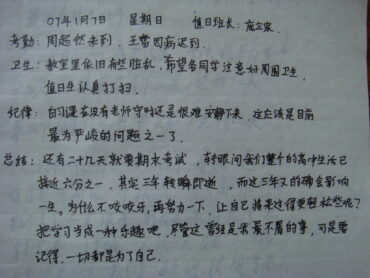 07年1月7日 星期日 值日班长：庞立家.
考勤：周超然未到，王蕾因病迟到.
卫生：教室里依旧有些脏乱，希望各同学注意好周围卫生，
值日生认真打扫.
纪律：自习课在没有老师守时还是很难安静下来，这应该是目前
最为严峻的问题之一了.
总结：还有二十几天就要期末考试，转眼间我们整个的高中生活已
接近六分之一，其实三年转瞬即逝，而这三年又的确会影响
一生。为什么不咬咬牙，再努力一下，让自己将来过得更轻松些呢？
把学习当成一种乐趣吧，尽管这曾经是我最不屑的事，可是要
记得，一切都是为了自己.